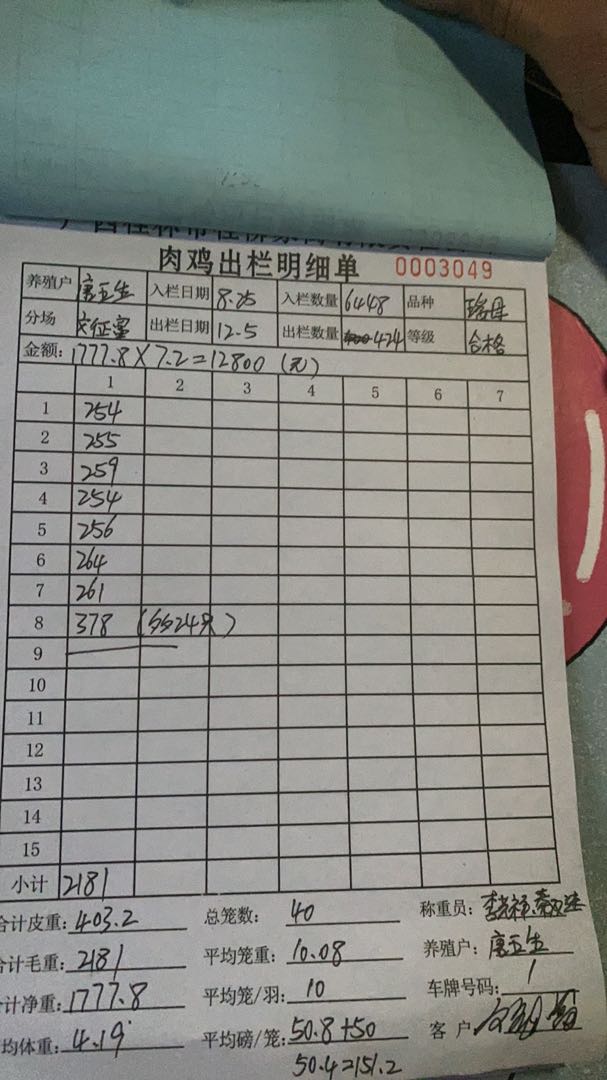 肉鸡出栏明细单 0003049
养殖户 唐五生 入栏日期 8.25 入栏数量 6448 品种
分场 出栏日期 12.5 出栏数量 424 等级 合格
金额: 1777.8×7.2=12800(元)
1 2 3 4 5 6 7
1 254
2 255
3 259
4 254
5 256
6 264
7 261
8 378 (24只)
9
10
11
12
13
14
15
小计 2181
合计皮重: 403.2 总笼数: 40 称重员:
合计毛重: 2181 平均笼重: 10.08 养殖户: 唐五生
合计净重: 1777.8 平均笼/羽: 10 车牌号码: 1
均体重: 4.19 平均磅/笼: 50.8+50 客户
50.4=151.2